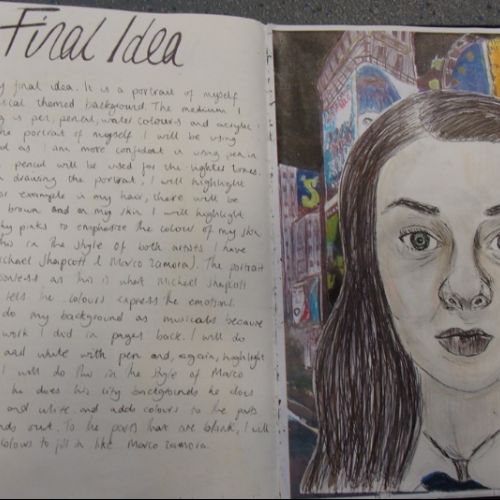 Final Idea
y final idea. It is a portrait of myself
sical themed background. The medium I
g is pen, pencil, water colours and acrylic.
he portrait of myself I will be using
d as I am more confident in using pen in
pencil will be used for the lighter tones.
n drawing the portrait, I will highlight
or example in my hair, there will be
brown and on my skin I will highlight
pinks to emphasize the colours of my skin
this in the style of both artists I have
ichael Shapcott & Marco Zamora). The portrait
as this is what Michael Shapcott
lets the colours express the emotions.
do my background as musicals because
work I did in pages back. I will do
and white with pen and, again, highlight
I will do this in the style of Marco
he does his city backgrounds he does
and white and adds colours to the parts
nds out. To the parts that are blank, I will
colours to fill in like Marco Zamora.
S